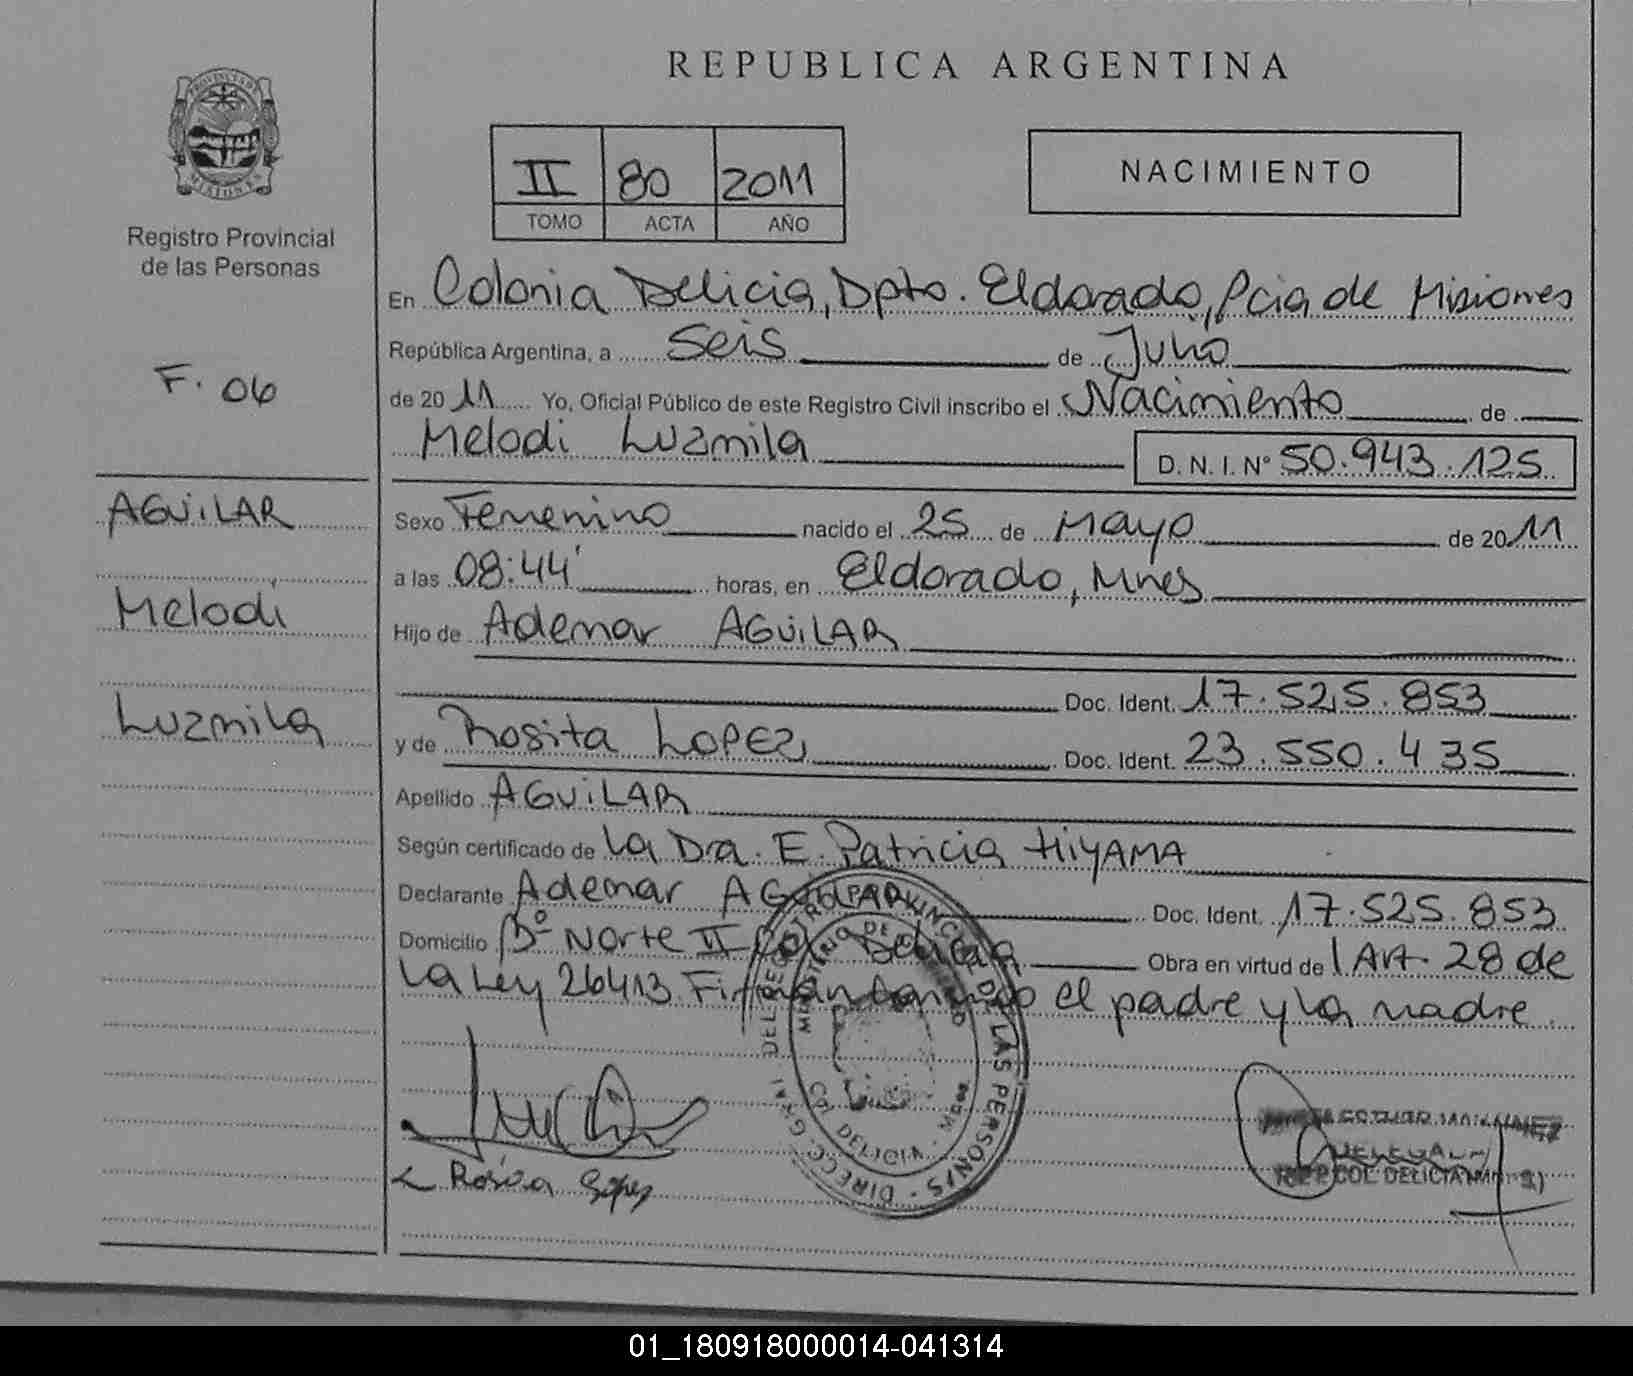 REPUBLICA ARGENTINA
II 80 2011
TOMO ACTA AÑO
NACIMIENTO
PROVINCIA DE MISIONES
Registro Provincial
de las Personas
F. 06
AGUILAR
Melodi
Luzmila
En Colonia Delicia, Dpto. Eldorado, Pcia de Misiones
República Argentina, a Seis de Julio
de 2011 Yo, Oficial Público de este Registro Civil inscribo el Nacimiento de
Melodi Luzmila D. N. I. Nº 50.943.125
Sexo Femenino nacido el 25 de Mayo de 2011
a las 08:44' horas, en Eldorado, Mnes
Hijo de Ademar AGUILAR
Doc. Ident. 17.525.853
y de Rosita Lopez Doc. Ident. 23.550.435
Apellido AGUILAR
Según certificado de La Dra. E. Patricia HIYAMA
Declarante Ademar AGUILAR Doc. Ident. 17.525.853
Domicilio Bº Norte II Col. Delicia Obra en virtud de l Art. 28 de
La Ley 26413. Firman el padre y la madre.
DIRECC. GRAL. DEL REG. PROVINCIAL DE LAS PERSONAS
MINISTERIO DE
COL. DELICIA - MNES
Rosita Lopez
COL DELICIA
01_180918000014-041314